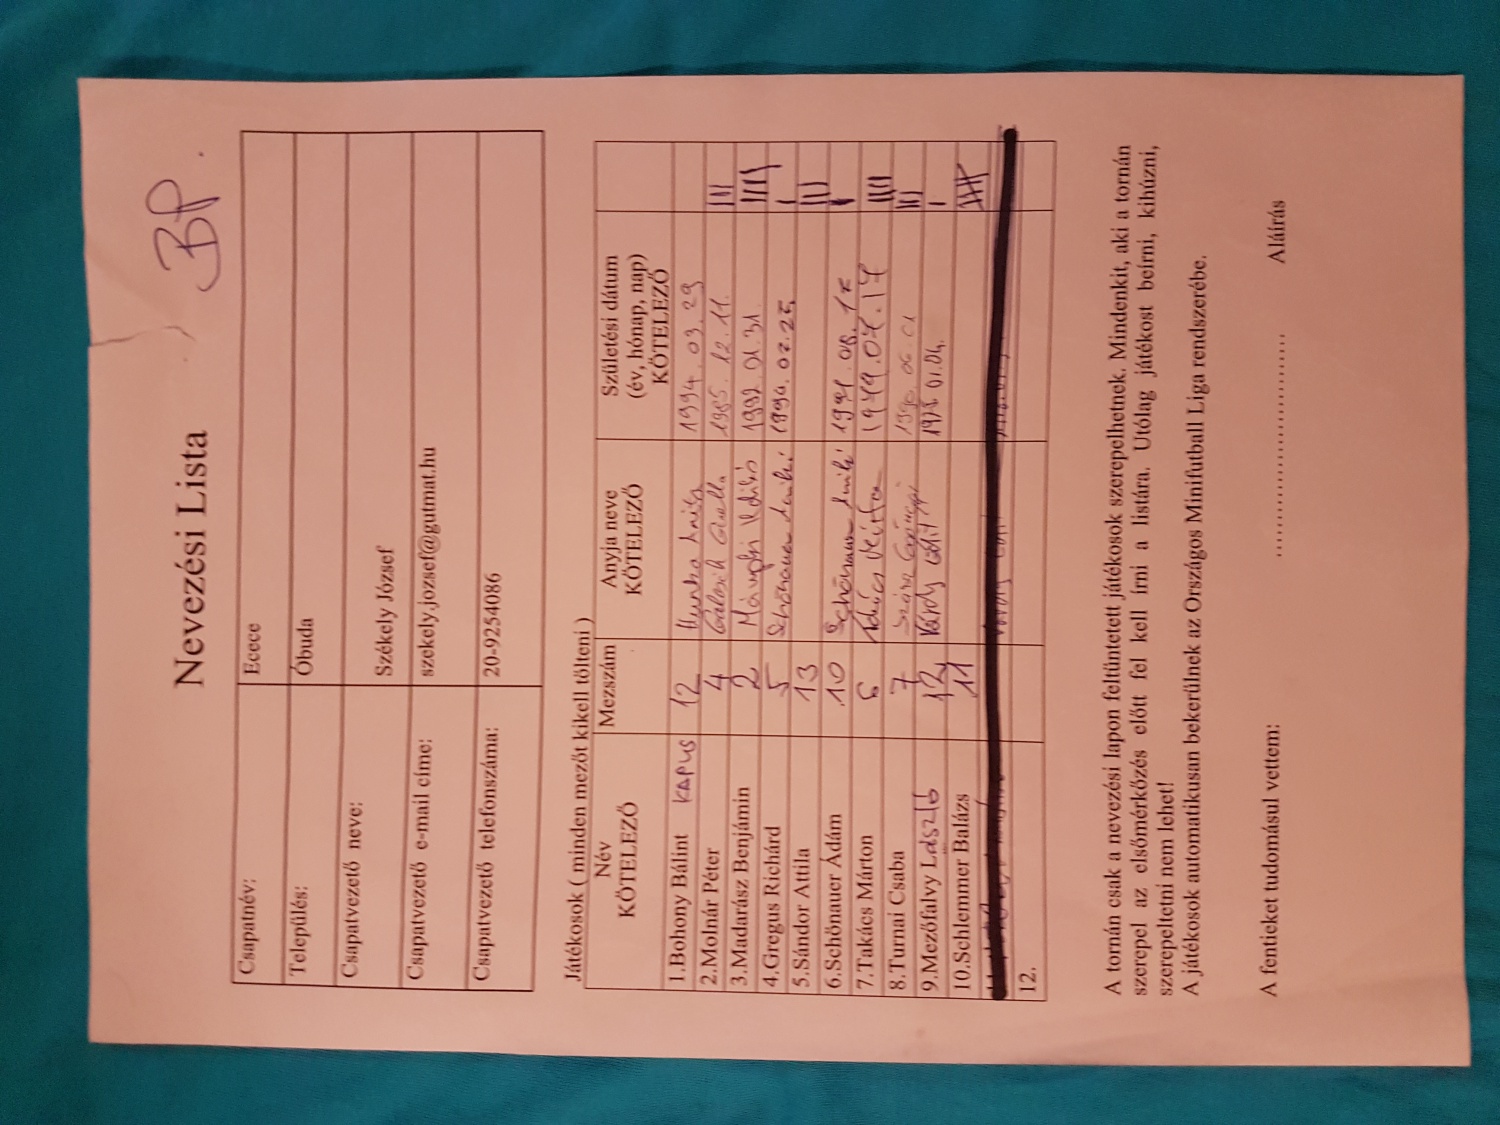 Nevezési Lista
BP.
Csapatnév: Ecece
Település: Óbuda
Csapatvezető neve: Székely József
Csapatvezető e-mail címe: szekely.jozsef@gutmat.hu
Csapatvezető telefonszáma: 20-9254086
Játékosok ( minden mezőt kikell tölteni )
Név KÖTELEZŐ Mezszám Anyja neve KÖTELEZŐ Születési dátum (év, hónap, nap) KÖTELEZŐ
1.Bohony Bálint KAPUS 12 1994. 03. 29
2.Molnár Péter 4 1985. 12. 11.
3.Madarász Benjámin 2 Ildikó 1992. 01. 31.
4.Gregus Richárd 5 Schönauer 1990. 02. 25.
5.Sándor Attila 13
6.Schönauer Ádám 10 Schönauer 1991. 08. 15
7.Takács Márton 6
8.Turnai Csaba 7 1990. 06. 01
9.Mezőfalvy László 12 Várdy Edit 1975. 01. 04.
10.Schlemmer Balázs 11
12.
A tornán csak a nevezési lapon feltüntetett játékosok szerepelhetnek. Mindenkit, aki a tornán
szerepel az elsőmérkőzés előtt fel kell írni a listára. Utólag játékost beírni, kihúzni,
szerepeltetni nem lehet!
A játékosok automatikusan bekerülnek az Országos Minifutball Liga rendszerébe.
A fentieket tudomásul vettem: .................................... Aláírás